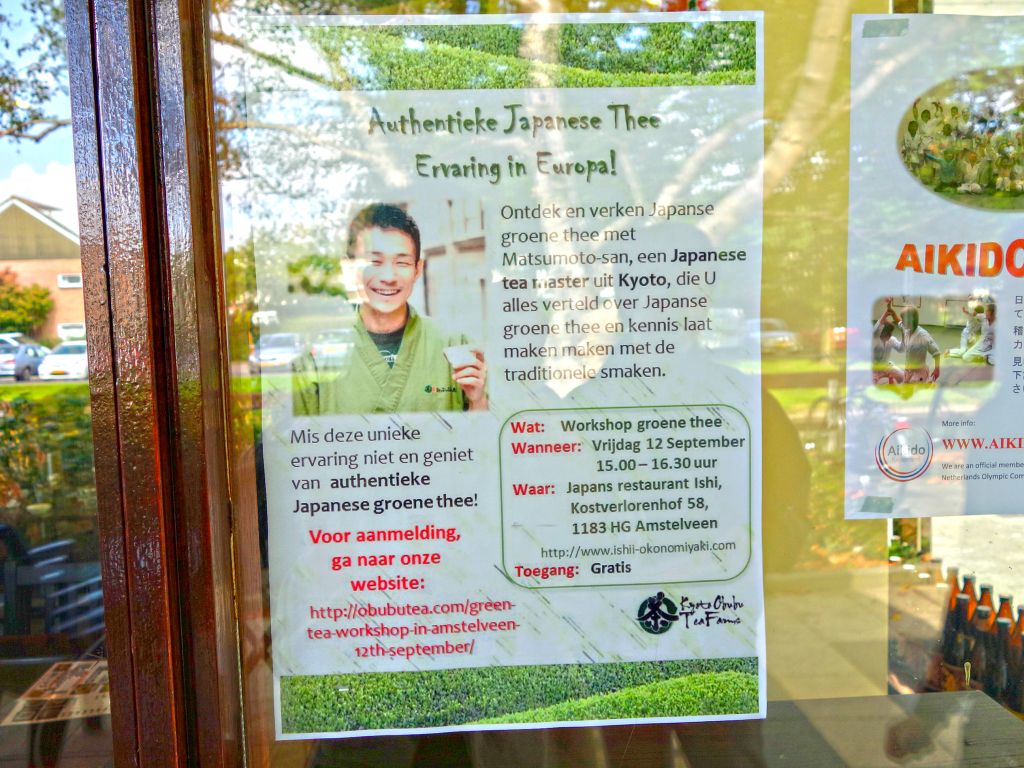 Authentieke Japanese Thee
Ervaring in Europa!
Ontdek en verken Japanse
groene thee met
Matsumoto-san, een Japanese
tea master uit Kyoto, die U
alles verteld over Japanse
groene thee en kennis laat
maken maken met de
traditionele smaken.
Mis deze unieke
ervaring niet en geniet
van authentieke
Japanese groene thee!
Voor aanmelding,
ga naar onze
website:
http://obubutea.com/green-
tea-workshop-in-amstelveen-
12th-september/
Wat: Workshop groene thee
Wanneer: Vrijdag 12 September
15.00 – 16.30 uur
Waar: Japans restaurant Ishi,
Kostverlorenhof 58,
1183 HG Amstelveen
http://www.ishii-okonomiyaki.com
Toegang: Gratis
Kyoto Obubu
Tea Farms
AIKIDO
More info:
WWW.AIKI
Aikido
We are an official membe
Netherlands Olympic Com